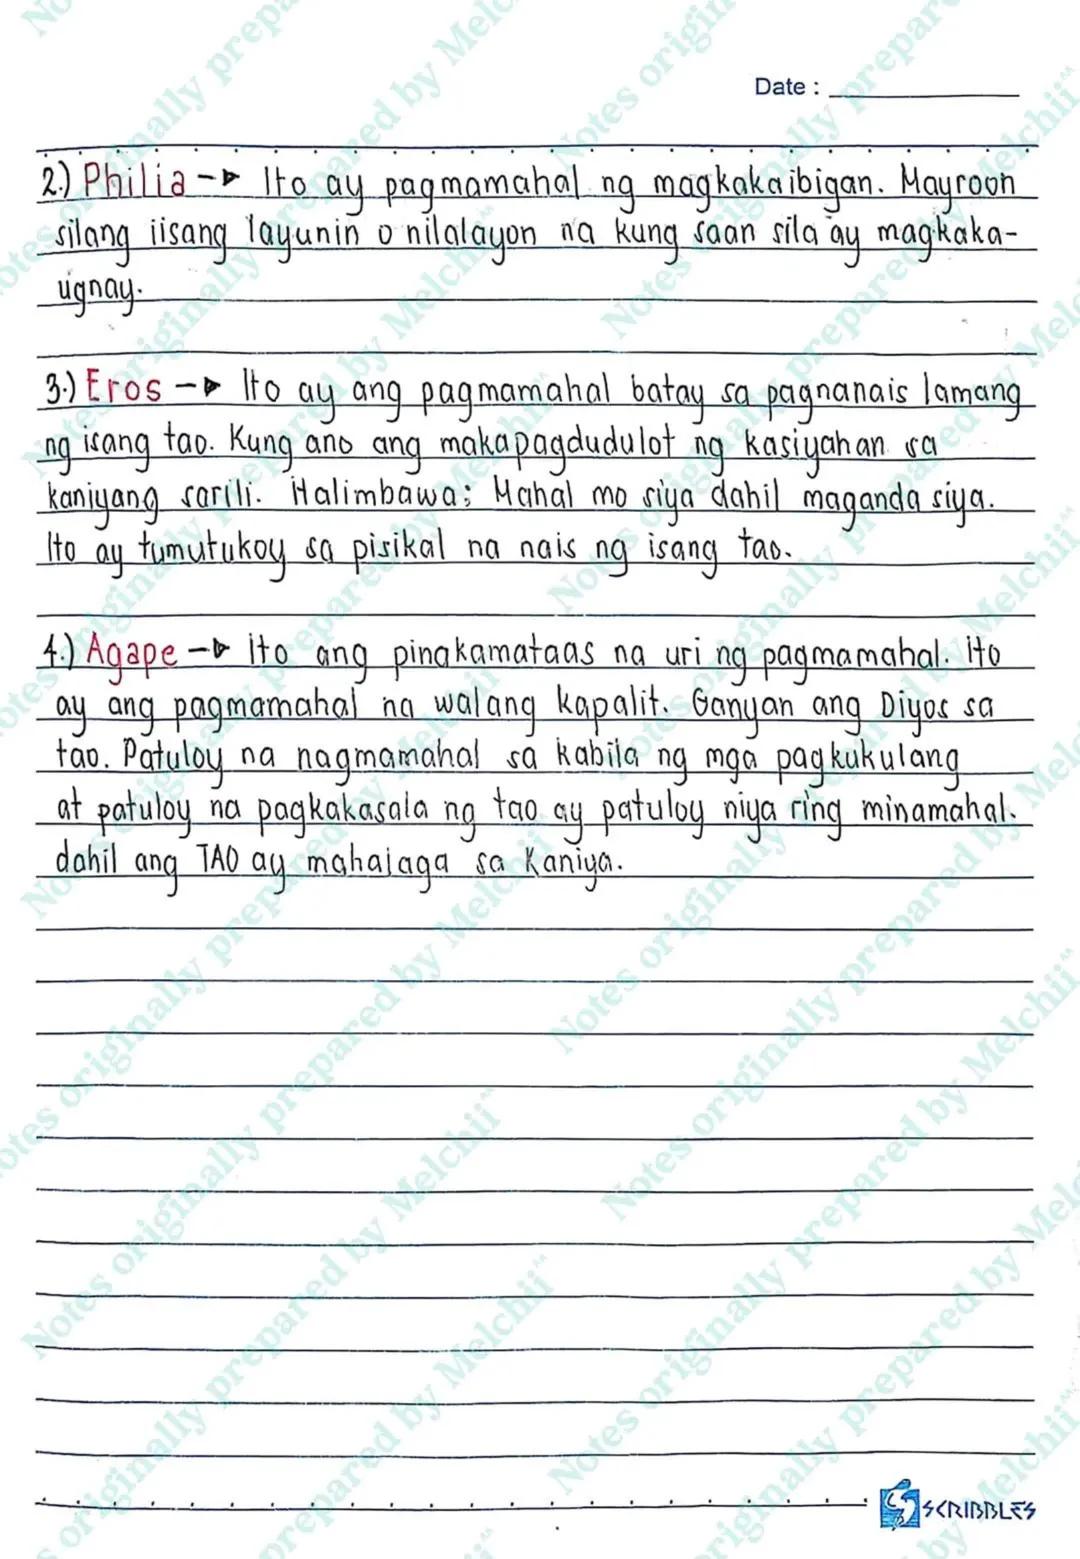 Date :
2.) Philia -► Ito ay pagmamahal ng magkakaibigan. Mayroon
silang iisang layunin o nilalayon na kung saan sila ay magkaka-
ugnay.
3.) Eros -► Ito ay ang pagmamahal batay sa pagnanais lamang
ng isang tao. Kung ano ang makapagdudulot ng kasiyahan sa
kaniyang sarili. Halimbawa; Mahal mo siya dahil maganda siya.
Ito ay tumutukoy sa pisikal na nais ng isang tao.
4.) Agape -► ito ang pinakamataas na uri ng pagmamahal. ito
ay ang pagmamahal na walang kapalit. Ganyan ang Diyos sa
tao. Patuloy na nagmamahal sa kabila ng mga pagkukulang
at patuloy na pagkakasala ng tao ay patuloy niya ring minamahal.
dahil ang TAO ay mahalaga sa Kaniya.
SCRIBBLES
Notes originally prepared by Melchii^^